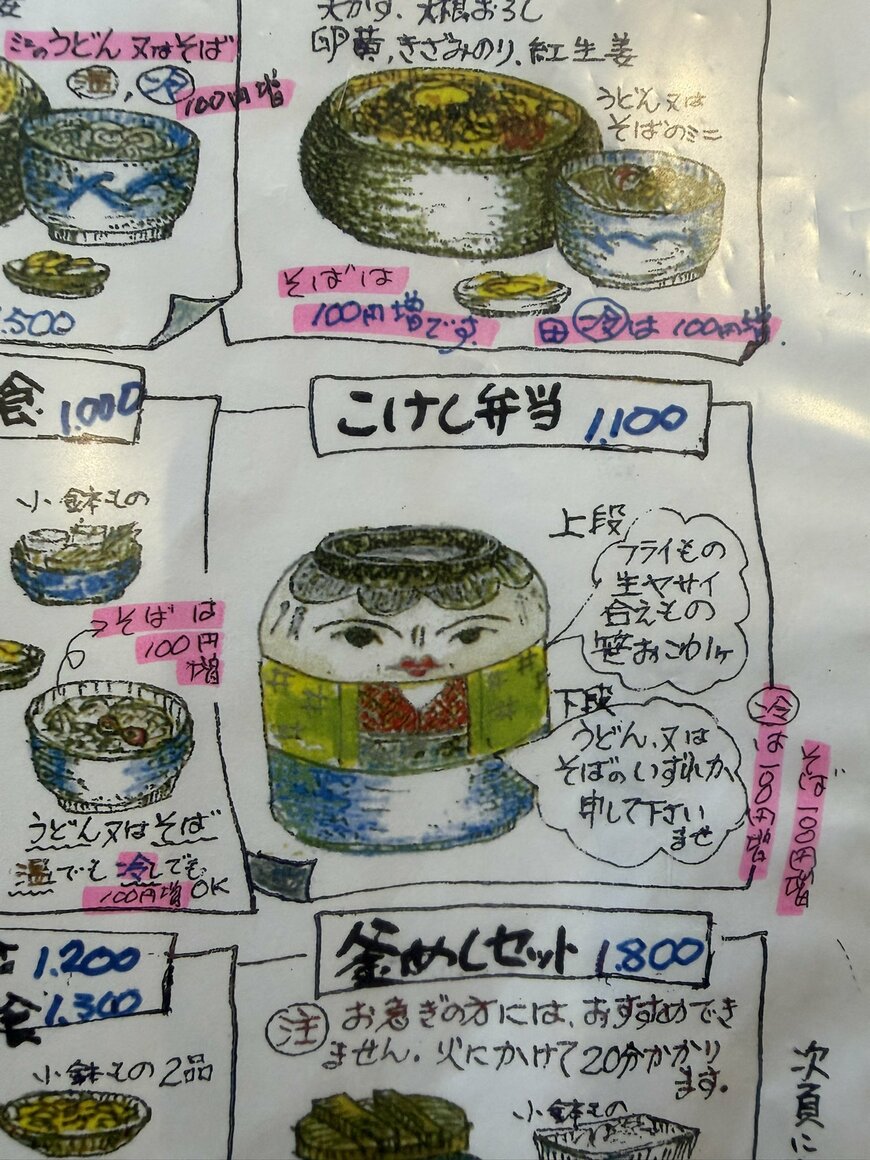 ミニのうどん又はそば
温,冷
100円増
500
天かす、大根おろし
卵黄,きざみのり、紅生姜
うどん又は
そばのミニ
そばは
100円増です
冷は100円増.
食 1.000
小鉢もの
そばは
100円
増
うどん又はそば
温でも冷しでも
100円増 OK
こけし弁当 1.100
上段
フライもの
生ヤサイ
合えもの
笹おこわ1ヶ
下段
うどん、又は
そばのいずれか
申して下さい
ませ
冷は100円増
そば100円増
1.200
食 1.300
小鉢もの 2品
釜めしセット 1.800
注 お急ぎの方には、おすすめでき
ません。火にかけて20分かかり
ます。
小鉢もの
次頁に